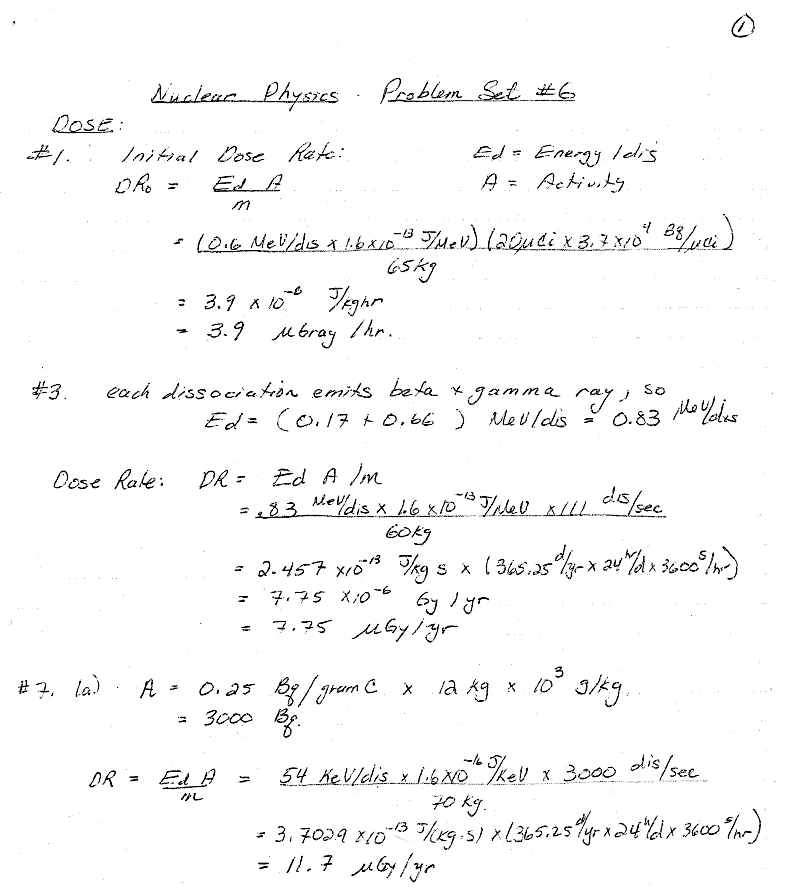 ①
Nuclear Physics - Problem Set #6
DOSE:
#1. Initial Dose Rate: Ed = Energy /dis
DR₀ = Ed A / m A = Activity
= (0.6 MeV/dis x 1.6x10⁻¹³ J/MeV) (20μCi x 3.7x10⁴ Bq/μCi) / 65kg
= 3.9 x 10⁻⁶ J/kghr
= 3.9 μGray /hr.
#3. each dissociation emits beta + gamma ray, so
Ed = (0.17 + 0.66 ) MeV/dis = 0.83 MeV/dis
Dose Rate: DR = Ed A /m
= .83 MeV/dis x 1.6 x10⁻¹³ J/MeV x 111 dis/sec / 60kg
= 2.457 x10⁻¹³ J/kg s x (365.25 d/yr x 24 hr/d x 3600 s/hr)
= 7.75 x10⁻⁶ Gy / yr
= 7.75 μGy/yr
#7. (a) A = 0.25 Bq/gram C x 12 kg x 10³ g/kg
= 3000 Bq.
DR = Ed A / m = 54 KeV/dis x 1.6x10⁻¹⁶ J/KeV x 3000 dis/sec / 70 kg.
= 3.7029 x10⁻¹³ J/(kg·s) x (365.25 d/yr x 24 h/d x 3600 s/hr)
= 11.7 μGy/yr